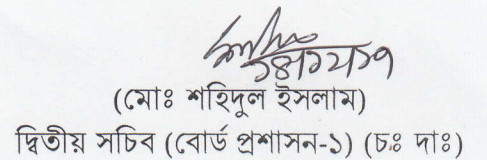 (মোঃ শহিদুল ইসলাম)
দ্বিতীয় সচিব (বোর্ড প্রশাসন-১) (চঃ দাঃ)